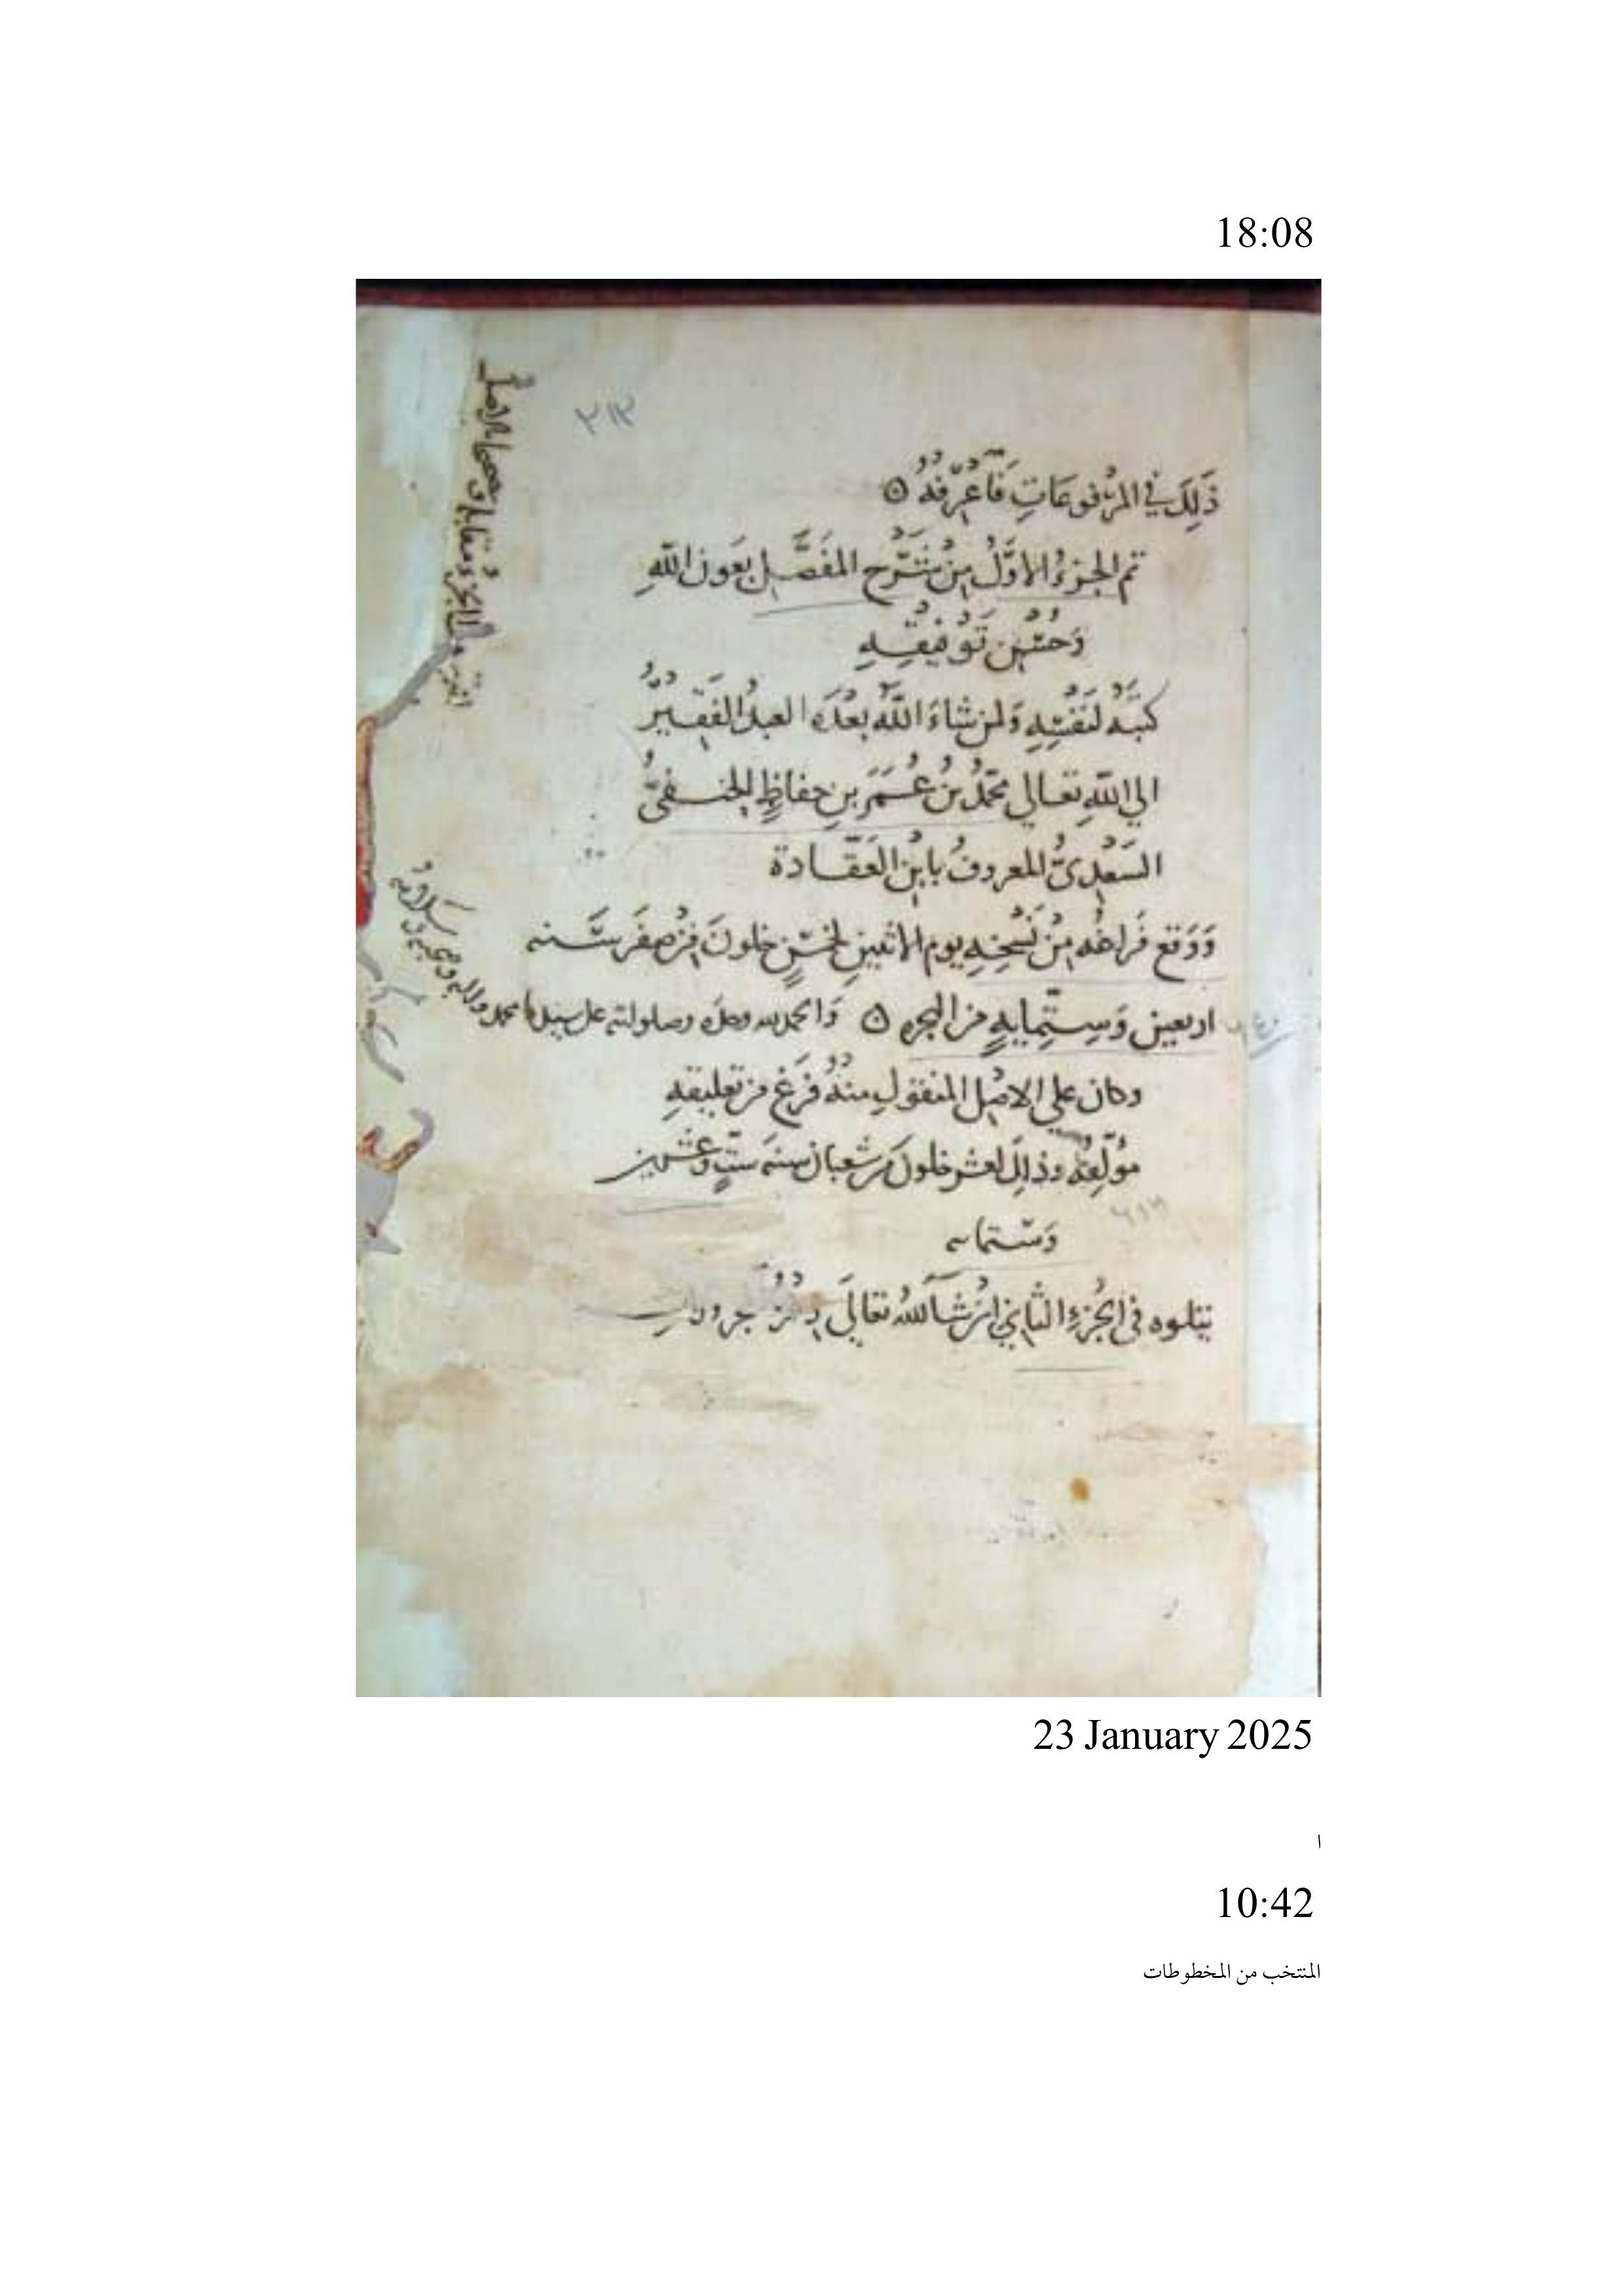 18:08
٢١٢
ذَلِكَ في المرْفوعَاتِ فَاعْرِفْهُ
تم الجزءُ الاوَّلُ مِنْ شَرْح المفَصَّلِ بعَون اللهِ
وَحُسْنِ تَوْفِيقِهِ
كتبَهُ لنَفْسِهِ وَلمن شاءَ اللَّهُ بعْدَه العبدُ الفَقِيرُ
الي اللهِ تعالي محمّدُ بنُ عُمَرَ بنِ حفاظٍ الحنفىُّ
السَّعْدِىُّ المعروفُ بابْنِ العَقَّادة
وَوَقع فَراغُه مِنْ نَسْخِهِ يوم الاثنينِ لخمْسٍ خلونَ مِنْ صفَر سَنه
اربعين وَسِتِّمايةٍ من الهجره وَالحمد لله وحده وصلواته على سيدنا محمد واله وصحبه وسلامه
وكان علي الاصْلِ المنقولِ منهُ فَرَغَ من تعليقهِ
مؤلِّفُه وذلِكَ لعشر خلون من شعبان سنه ستٍّ وعشرين
وَستمايه
يتلوه فى الجُزءِ الثاني انْ شآ اللهُ تعالَى
23 January 2025
ا
10:42
المنتخب من المخطوطات